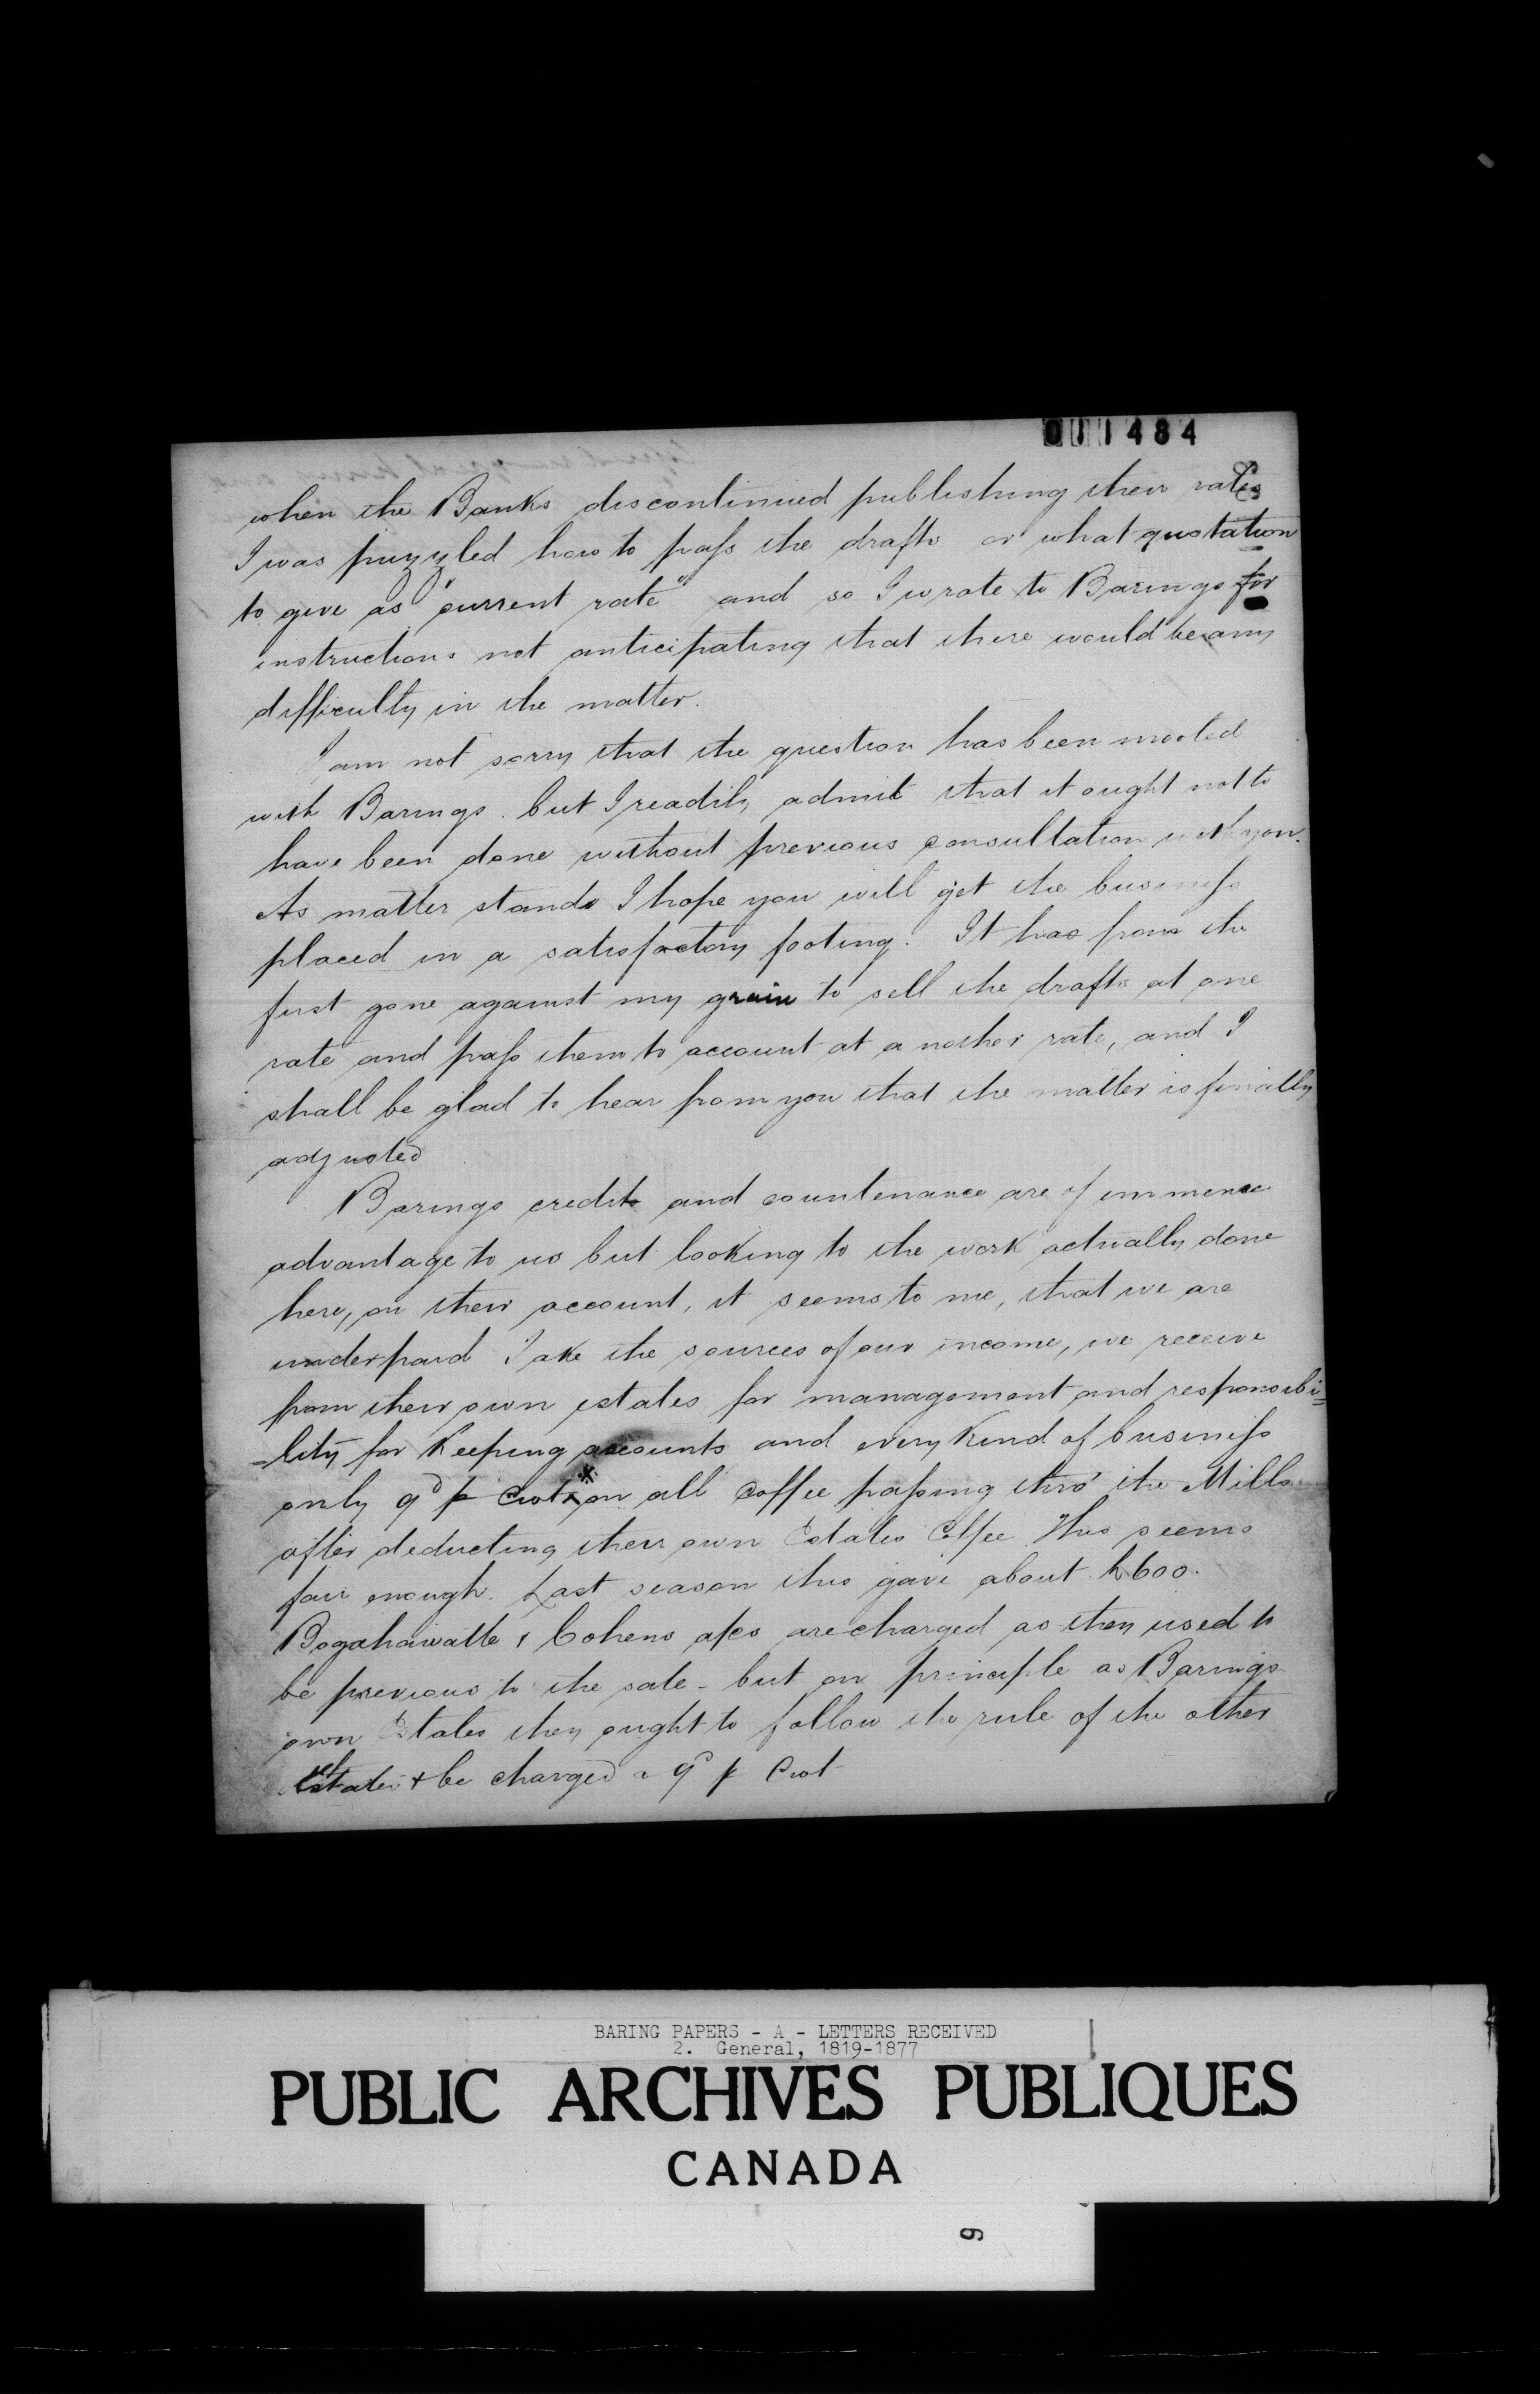 011484
when the Banks discontinued publishing their rates
I was puzzled how to pass the drafts or what quotation
to give as "current rate" and so I wrote to Barings for
instructions not anticipating that there would be any
difficulty in the matter.
I am not sorry that the question has been mooted
with Barings. but I readily admit that it ought not to
have been done without previous consultation with you.
As matter stands I hope you will get the business
placed in a satisfactory footing. It has from the
first gone against my grain to sell the drafts at one
rate and pass them to account at another rate, and I
shall be glad to hear from you that the matter is finally
adjusted
Barings credit and countenance are of immense
advantage to us but looking to the work actually done
here, on their account, it seems to me, that we are
underpaid Take the sources of our income, we receive
from their own estates for management and responsibi=
=lity for Keeping accounts and every Kind of business
only 9d p Cwt * on all Coffee passing thro' the Mills
after deducting their own Estates Coffee This seems
fair enough. Last season this gave about £600.
Bogahawatte & Cohens a/cs are charged as they used to
be previous to the sale - but on principle as Barings
own Estates they ought to follow the rule of the other
Estates & be charged a 9d p Cwt
BARING PAPERS - A - LETTERS RECEIVED
2. General, 1819-1877
PUBLIC ARCHIVES PUBLIQUES
CANADA
9